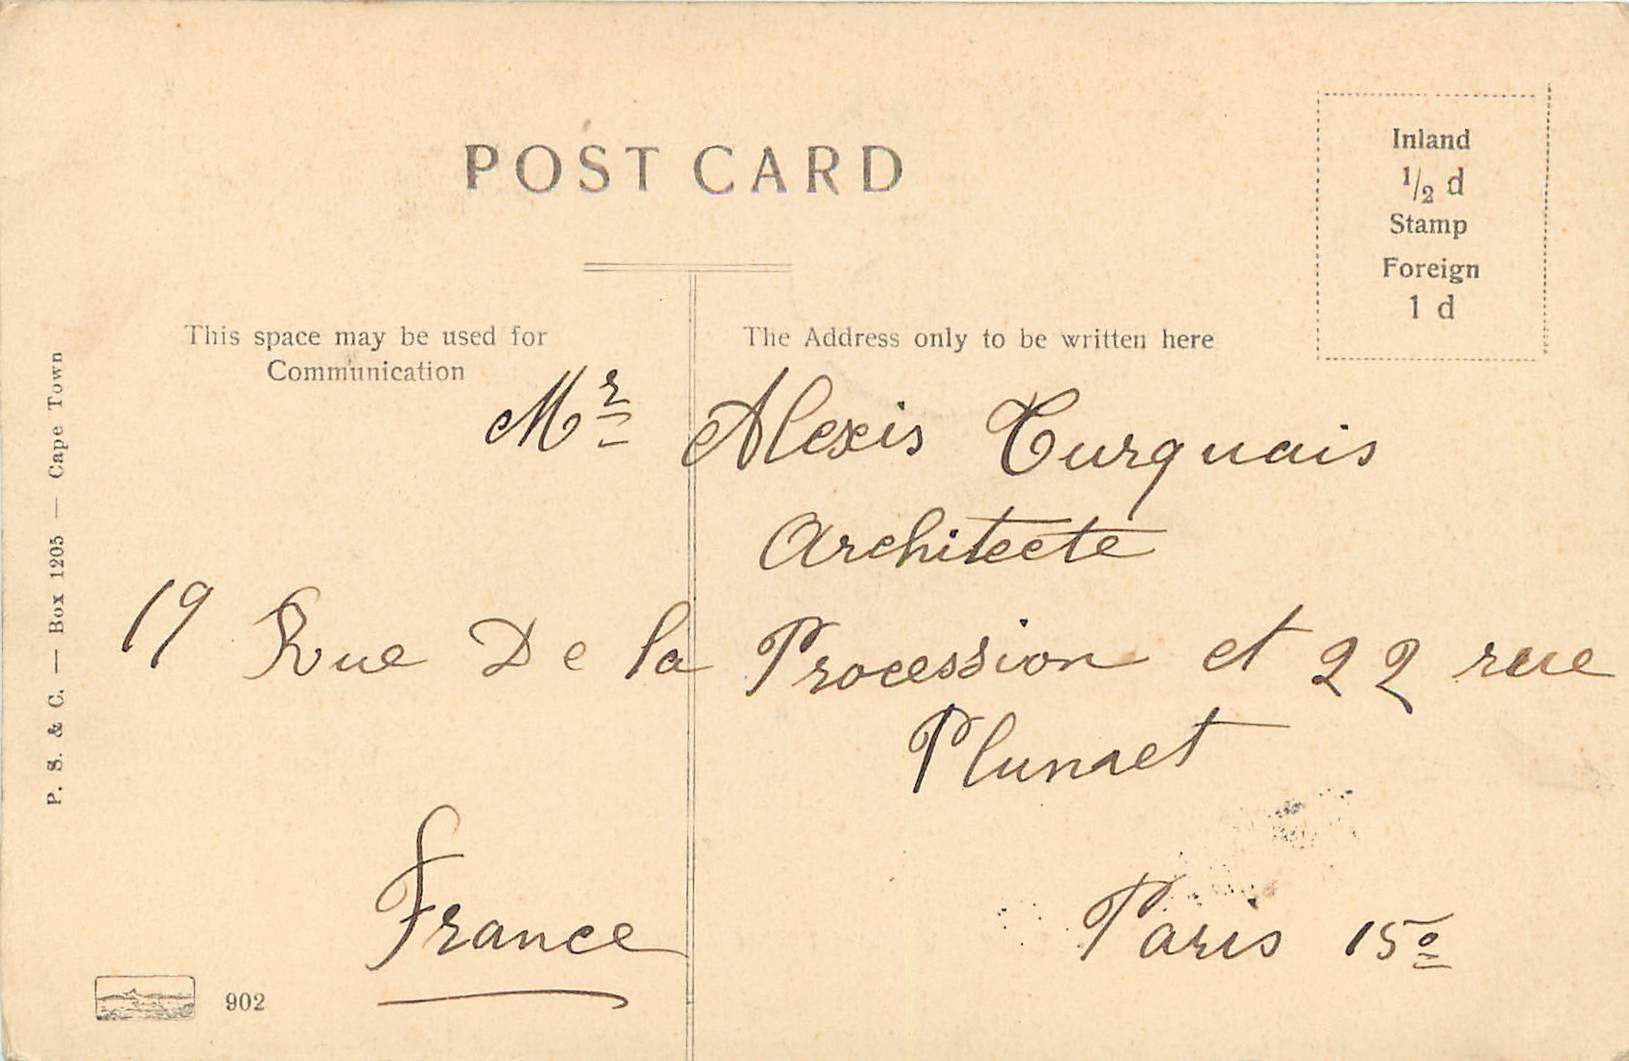 POST CARD
Inland
1/2 d
Stamp
Foreign
1 d
This space may be used for
Communication
The Address only to be written here
Mr Alexis Turquais
Architecte
19 Rue De la Procession et 22 rue
Plumet
Paris 15e
France
P. S. & C. — Box 1205 — Cape Town
902